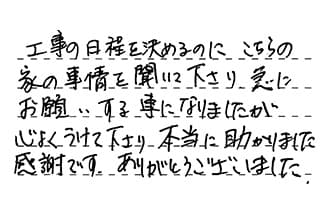 工事の日程を決めるのに こちらの
家の事情を聞いて下さり 急に
お願いする事になりましたが
心よくうけて下さり 本当に助かりました
感謝です ありがとうございました.